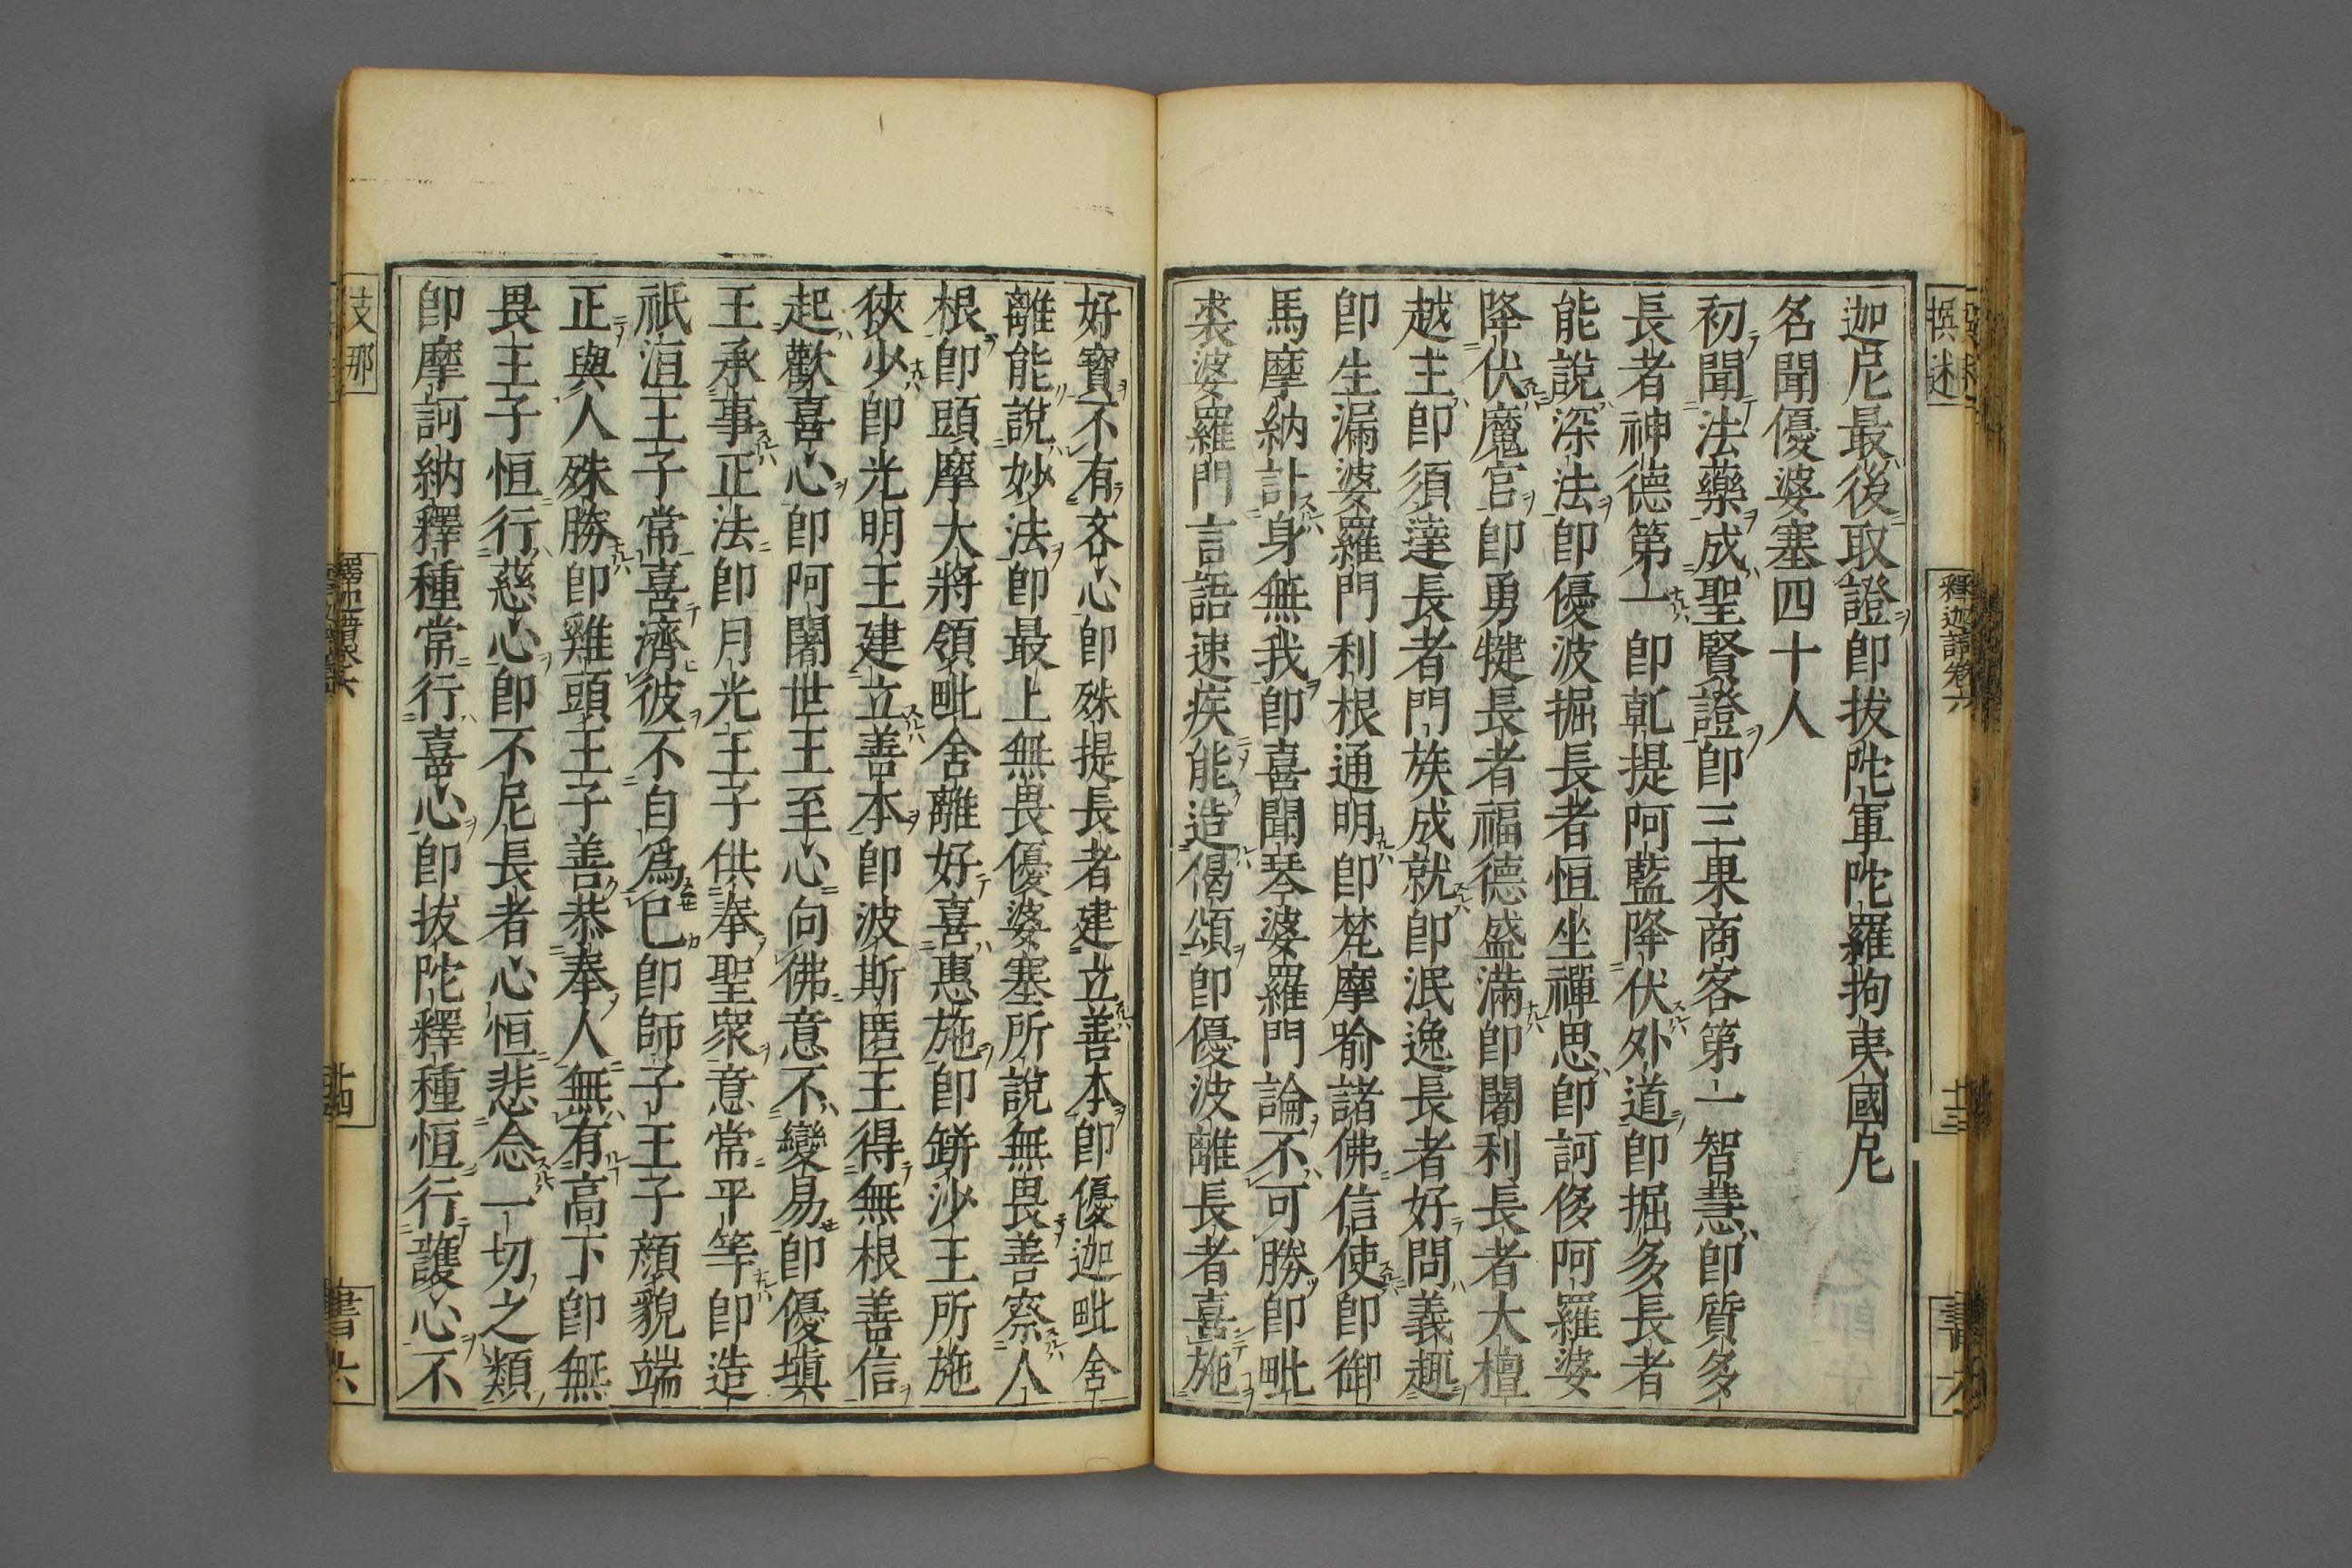 撰述
釋迦譜卷六
十三
書六
迦尼最後取證卽拔陀軍陀羅拘夷國尼
名聞優婆塞四十人
初聞法藥成聖賢證卽三果商客第一智慧卽質多
長者神德第一卽乹提阿藍降伏外道卽掘多長者
能說深法卽優波掘長者恒坐禪思卽訶侈阿羅婆
降伏魔官卽勇犍長者福德盛滿卽闍利長者大檀
越主卽須達長者門族成就卽泯逸長者好問義趣
卽生漏婆羅門利根通明卽梵摩喻諸佛信使卽御
馬摩納計身無我卽喜聞琴婆羅門論不可勝卽毗
裘婆羅門言語速疾能造偈頌卽優波離長者喜施
好寶不有吝心卽殊提長者建立善本卽優迦毗舍
離能說妙法卽最上無畏優婆塞所說無畏善察人
根卽頭摩大將領毗舍離好喜惠施卽缾沙王所施
狹少卽光明王建立善本卽波斯匿王得無根善信
起歡喜心卽阿闍世王至心向佛意不變易卽優塡
王承事正法卽月光王子供奉聖衆意常平等卽造
祇洹王子常喜濟彼不自爲已卽師子王子顏貌端
正與人殊勝卽雞頭王子善恭奉人無有高下卽無
畏王子恒行慈心卽不尼長者心恒悲念一切之類
卽摩訶納釋種常行喜心卽拔陀釋種恒行護心不
支那
十四
書六